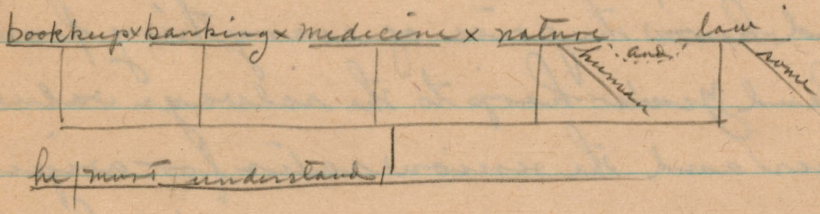 bookkeep x banking x medicine x nature and law
human some
he must understand